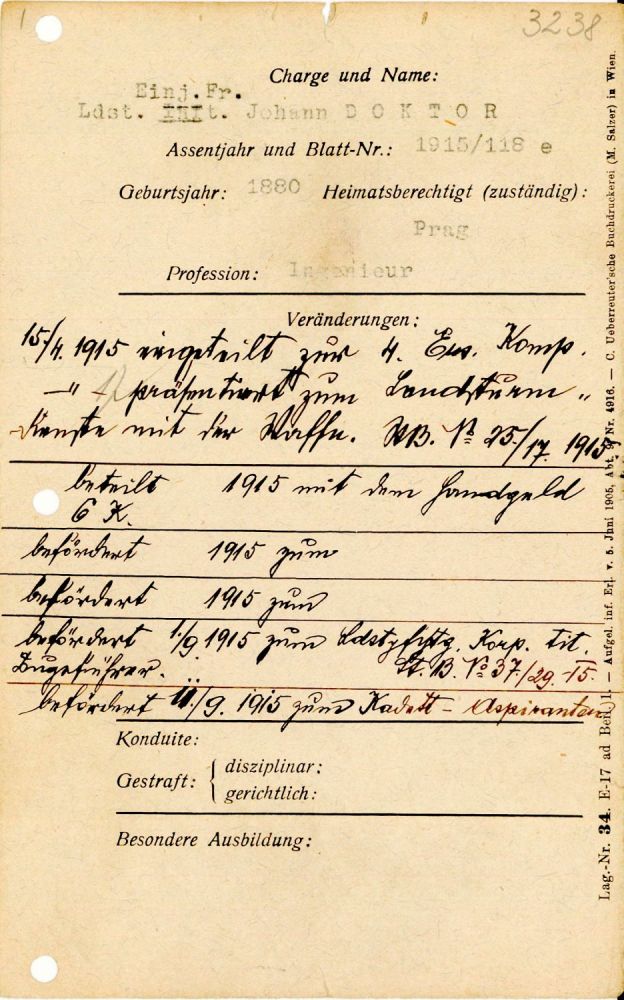 3238
Charge und Name:
Einj. Fr.
Ldst. Inft. Johann DOKTOR
Assentjahr und Blatt-Nr.: 1915/118 e
Geburtsjahr: 1880 Heimatsberechtigt (zuständig):
Prag
Profession: Ingenieur
Veränderungen:
15/4. 1915 eingeteilt zur 4. Ers. Komp.
-"- präsentiert zum Landsturm"
dienste mit der Waffe. No 25/17. 1915
beteilt 1915 mit dem Handgeld
6 K.
befördert 1915 zum
befördert 1915 zum
befördert 1/9 1915 zum Korp. tit.
Zugsführer. No 37/29.-15.
befördert 11./9. 1915 zum Kadett - Aspiranten
Konduite:
Gestraft: { disziplinar:
gerichtlich:
Besondere Ausbildung:
Lag.-Nr. 34. E-17 ad Beil. 1. — Aufgel. inf. Erl. v. 5. Juni 1905, Abt. 9, Nr. 4916. — C. Ueberreuter'sche Buchdruckerei (M. Salzer) in Wien.